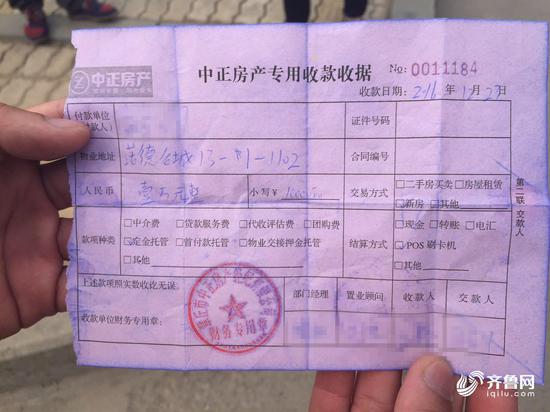 中正房产
中正房产专用收款收据
No: 0011184
收款日期 2016年12月27日
付款单位
(付款人)
证件号码
物业地址
13-1-1102
合同编号
人民币
壹万元整
小写¥
交易方式
□二手房买卖 □房屋租赁
□新房 □其他
款项种类
□中介费 □贷款服务费 □代收评估费 □团购费
☑定金托管 □首付款托管 □物业交接押金托管
□其他
结算方式
□现金 □转账 □电汇
☑POS 刷卡机
□其他
上述款项照实数收讫无误。
收款单位财务专用章:
部门经理
置业顾问
收款人
交款人
财务专用章
第二联 交款人
齐鲁网
iqilu.com